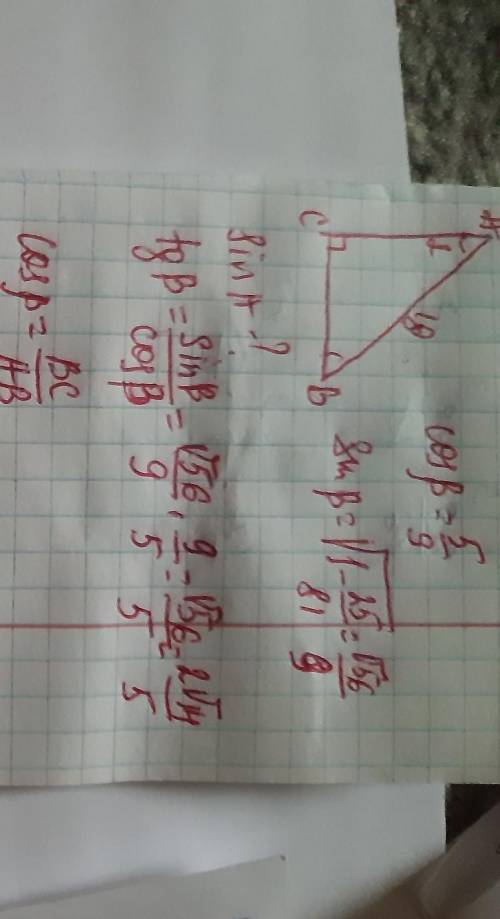 A
18
C
B
cos β = 5/9
sin β = √(1 - 25/81) = √56/9
sin A - ?
tg β = sin β/cos β = √56/9 · 9/5 = √56/5 = 2√14/5
cos β = BC/AB